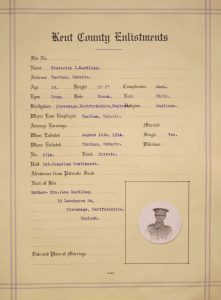 Kent County Enlistments
File No.
Name Frederick C.Hardling.
Address Chatham, Ontario.
Age Height 5' 2" Complexion Dark.
Eyes Gray. Hair Brown. Race White.
Birthplace Stevenage,Hertfordshire,England Religion Anglican.
Where Last Employed Chatham, Ontario.
Average Earnings Married
When Enlisted August 14th, 1914. Single Yes.
Where Enlisted Chatham, Ontario. Widower
No. Rank Private.
Unit 1st.Canadian Contingent.
Allowance from Patriotic Fund
Next of Kin
Mother- Mrs.Jane Hardling,
Letchmore Rd,
Stevenage, Hertfordshire,
England.
Date and Place of Marriage